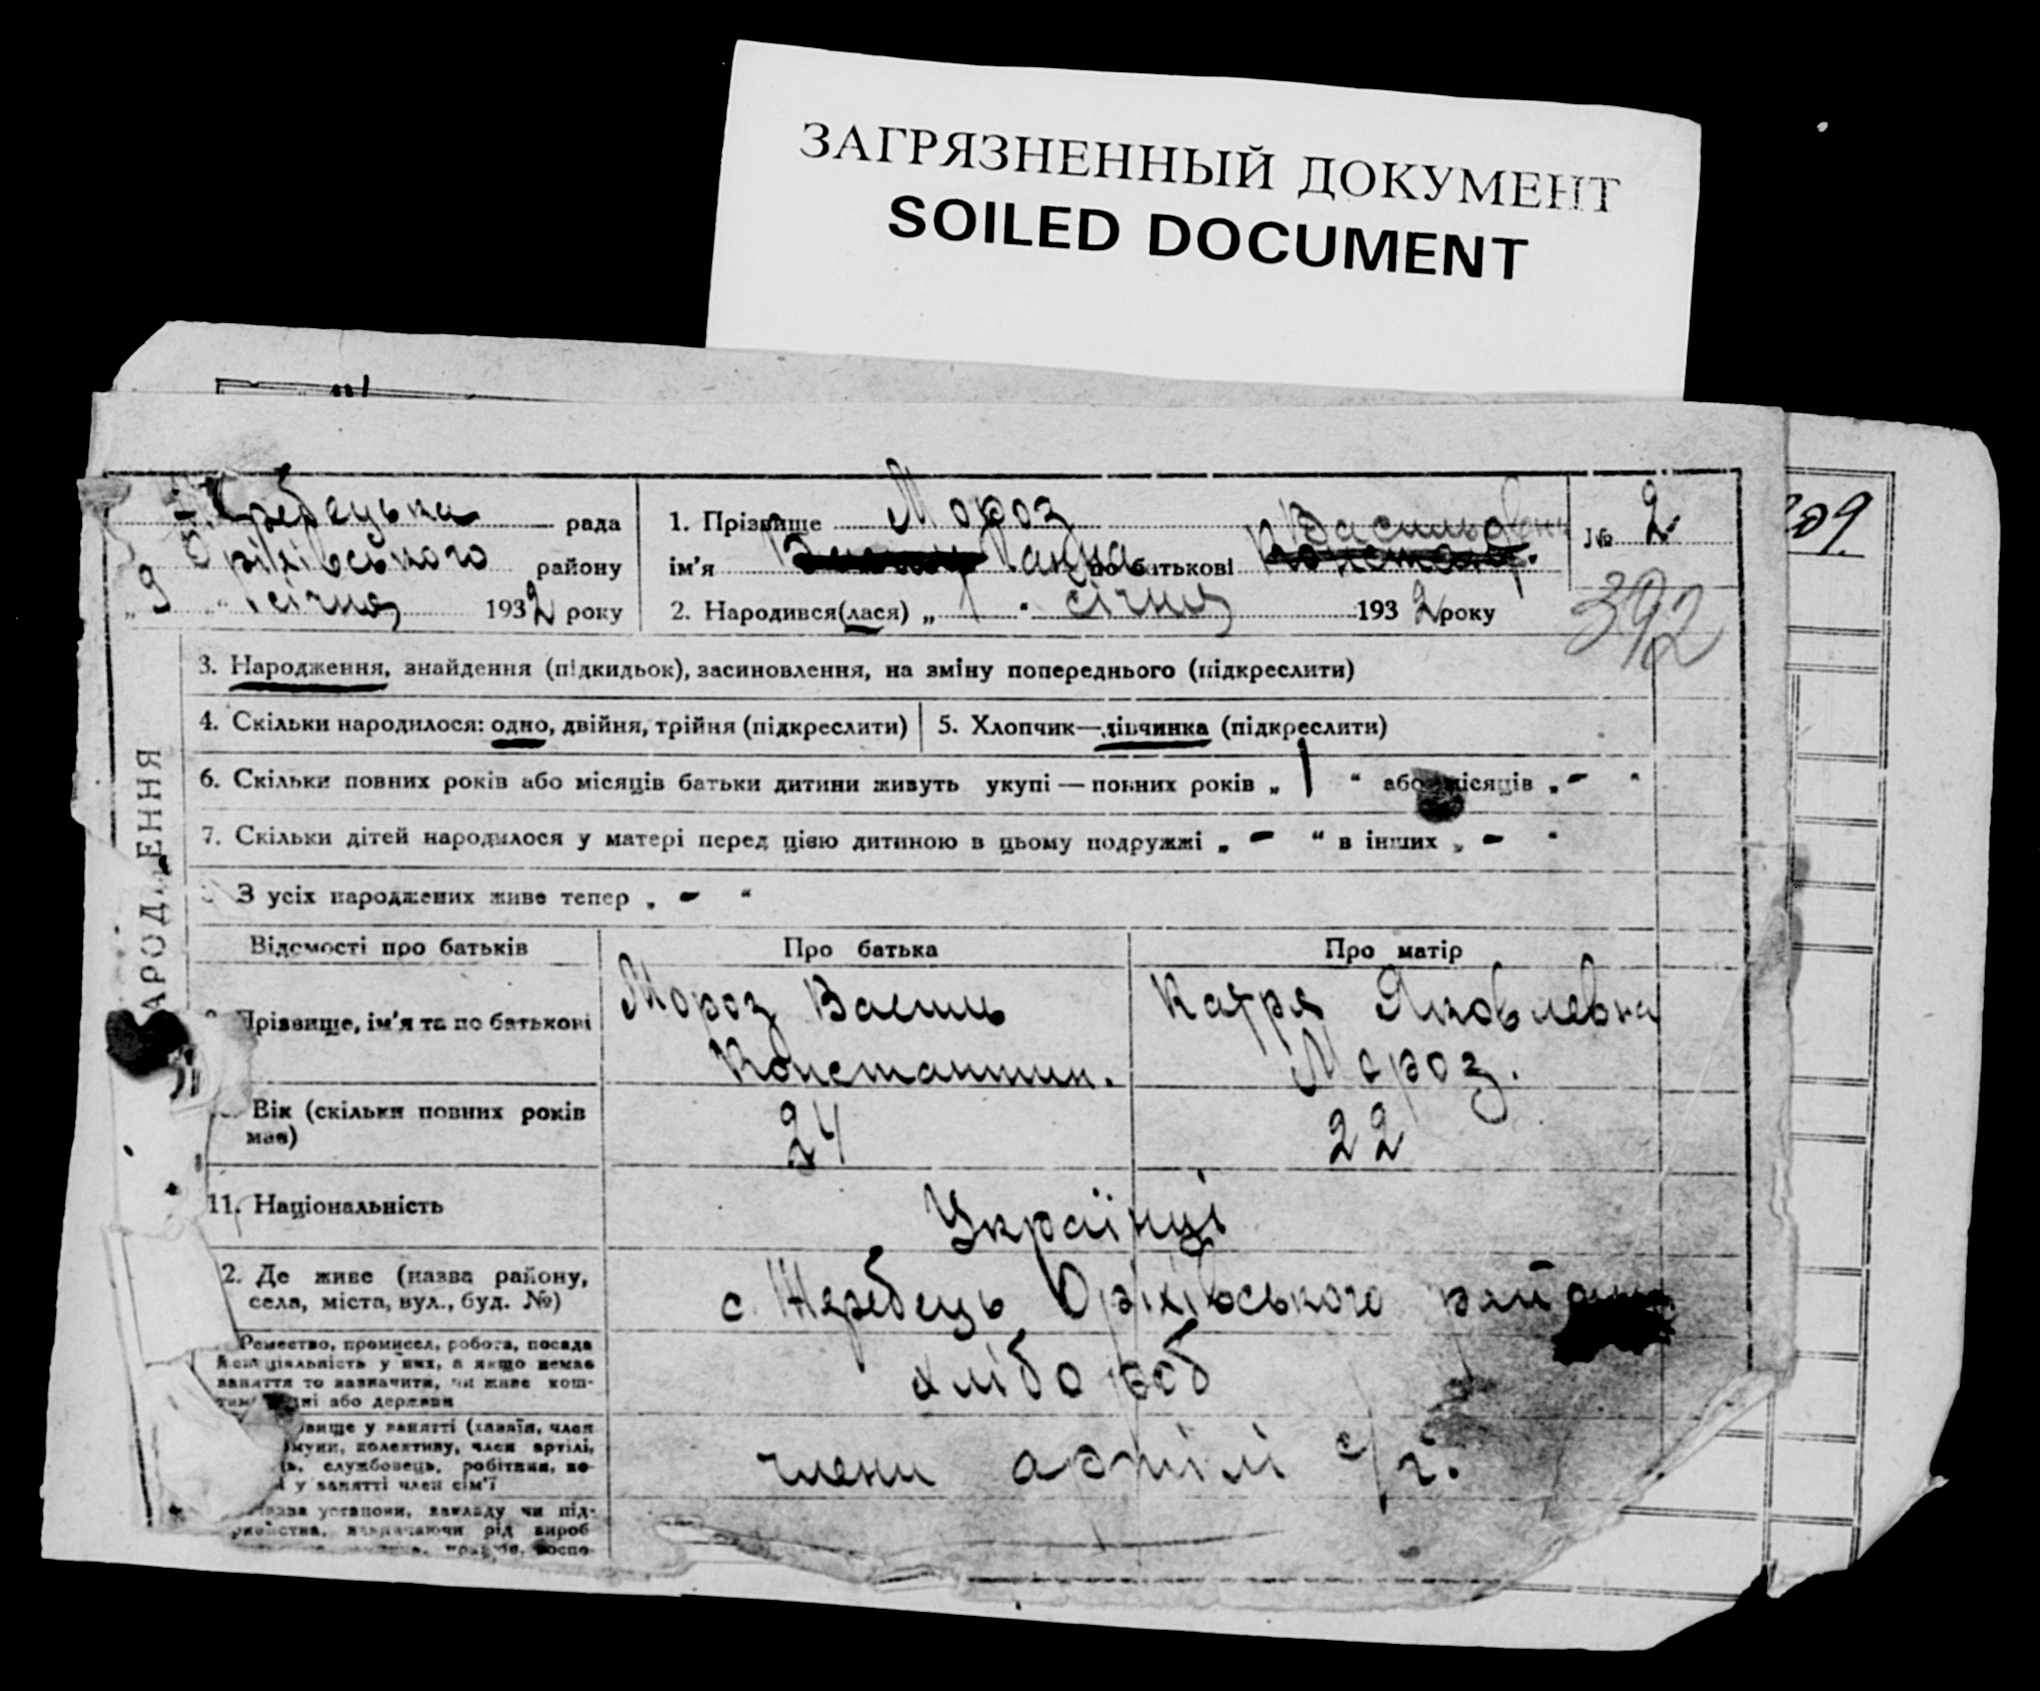 ЗАГРЯЗНЕННЫЙ ДОКУМЕНТ
SOILED DOCUMENT
209.
Жеребецька рада
Оріхівського району
„ 9 “ січня 1932 року
1. Прізвище Мороз
ім'я Ганна по батькові Васильовна
2. Народився(лася) „ “ січня 1932 року
№ 2
392
НАРОДЖЕННЯ
3. Народження, знайдення (підкидьок), засиновлення, на зміну попереднього (підкреслити)
4. Скільки народилося: одно, двійня, трійня (підкреслити)
5. Хлопчик—дівчинка (підкреслити)
6. Скільки повних років або місяців батьки дитини живуть укупі — повних років „ 1 “ або місяців „ - “
7. Скільки дітей народилося у матері перед цією дитиною в цьому подружжі „ - “ в інших „ - “
З усіх народжених живе тепер „ - “
Відомості про батьків Про батька Про матір
Прізвище, ім'я та по батькові
Мороз Василь
Константин.
Катря Яковлевна
Мороз.
Вік (скільки повних років
має)
24 22
11. Національність Українці
2. Де живе (назва району,
села, міста, вул., буд. №)
с. Жеребець Оріхівського району
Ремество, промисел, робота, посада
спеціальність у них, а якщо немає
заняття то зазначити, чи живе кош-
або держави
хлібороб
у занятті (хазяїн, член
колективу, член артілі,
службовець, робітник,
у занятті член сім'ї
члени артілі с/г.
установи, закладу чи під-
рід вироб